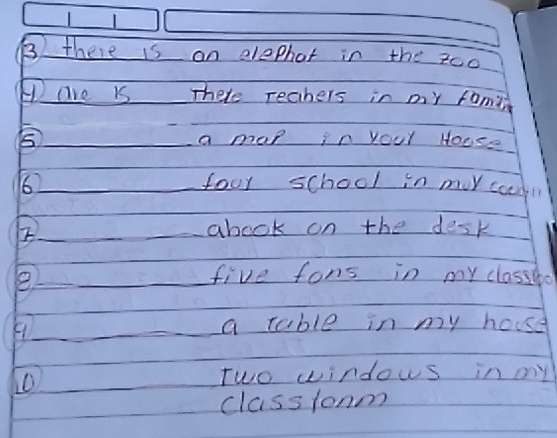 3 there is an elephat in the zoo
4 are is There teachers in my famin
5 a map in your House
6 four school in my
7 abook on the desk
8 five fans in my classroo
9 a table in my house
10 Two windows in my
classroom